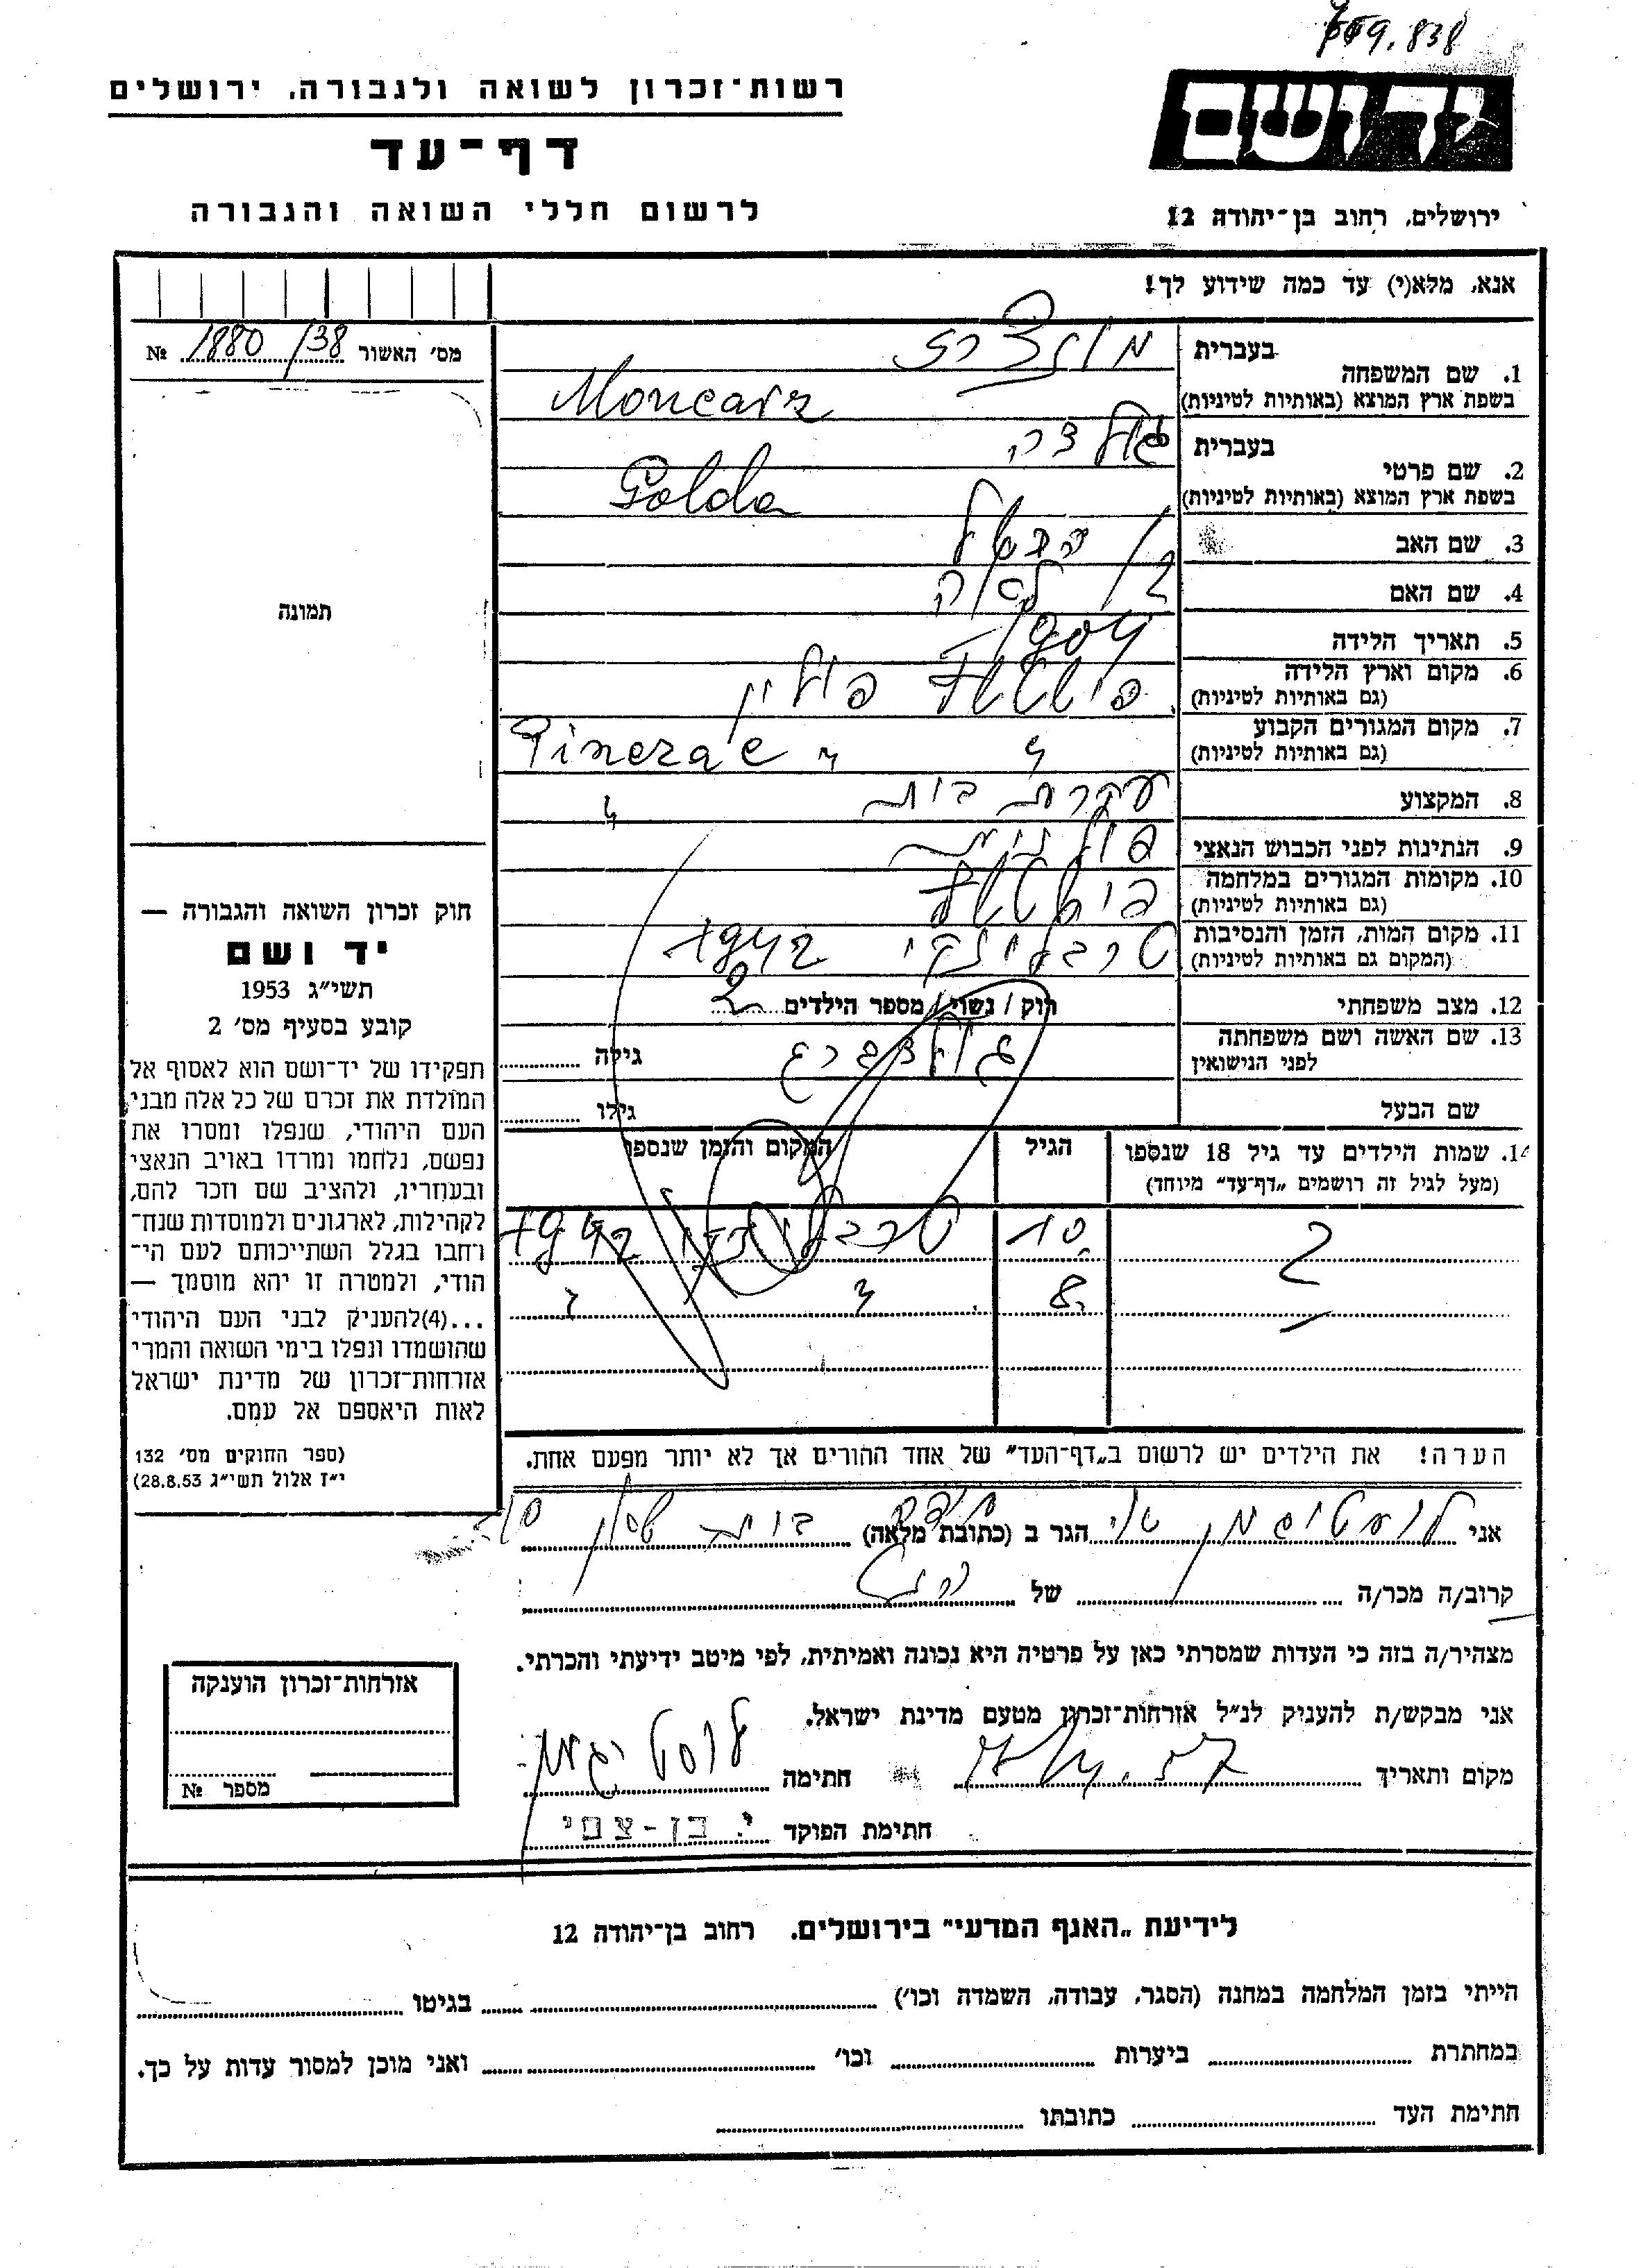 רשות־זכרון לשואה ולגבורה, ירושלים
דף־עד
לרשום חללי השואה והגבורה
יד ושם
ירושלים, רחוב בן־יהודה 12
אנא, מלא(י) עד כמה שידוע לך!
מס׳ האשור 1880/38 №
תמונה
1. שם המשפחה
בעברית
בשפת ארץ המוצא (באותיות לטיניות) Moncarz
2. שם פרטי
בעברית גולדה
בשפת ארץ המוצא (באותיות לטיניות) Golda
3. שם האב
4. שם האם לאה
5. תאריך הלידה 1904
6. מקום וארץ הלידה
(גם באותיות לטיניות) פולין
7. מקום המגורים הקבוע
(גם באותיות לטיניות)
8. המקצוע עקרת בית
9. הנתינות לפני הכבוש הנאצי פולנית
10. מקומות המגורים במלחמה
(גם באותיות לטיניות)
11. מקום המות, הזמן והנסיבות
(המקום גם באותיות לטיניות) טרבלינקי 1942
12. מצב משפחתי רוק / נשוי / מספר הילדים 2
13. שם האשה ושם משפחתה
לפני הנישואין גולדברג גילה
שם הבעל גילו
14. שמות הילדים עד גיל 18 שנספו
(מעל לגיל זה רושמים „דף־עד" מיוחד)
הגיל
המקום והזמן שנספו
10 טרבלינקי 1942
8
הערה! את הילדים יש לרשום ב„דף־העד" של אחד ההורים אך לא יותר מפעם אחת.
חוק זכרון השואה והגבורה —
יד ושם
תשי״ג 1953
קובע בסעיף מס׳ 2
תפקידו של יד־ושם הוא לאסוף אל
המולדת את זכרם של כל אלה מבני
העם היהודי, שנפלו ומסרו את
נפשם, נלחמו ומרדו באויב הנאצי
ובעוזריו, ולהציב שם וזכר להם,
לקהילות, לארגונים ולמוסדות שנח־
רחבו בגלל השתייכותם לעם הי־
הודי, ולמטרה זו יהא מוסמך —
...(4)להעניק לבני העם היהודי
שהושמדו ונפלו בימי השואה והמרי
אזרחות־זכרון של מדינת ישראל
לאות היאספם אל עמם.
(ספר החוקים מס׳ 132
י״ז אלול תשי״ג 28.8.53)
אני הגר ב (כתובת מלאה)
קרוב/ה מכר/ה של
מצהיר/ה בזה כי העדות שמסרתי כאן על פרטיה היא נכונה ואמיתית, לפי מיטב ידיעתי והכרתי.
אני מבקש/ת להעניק לנ״ל אזרחות־זכרון מטעם מדינת ישראל.
מקום ותאריך חתימה
חתימת הפוקד י. בן-צמי
אזרחות־זכרון הוענקה
מספר №
לידיעת „האגף המדעי" בירושלים, רחוב בן־יהודה 12
הייתי בזמן המלחמה במחנה (הסגר, עבודה, השמדה וכו׳) בגיטו
במחתרת ביערות וכו׳ ואני מוכן למסור עדות על כך.
חתימת העד כתובתו